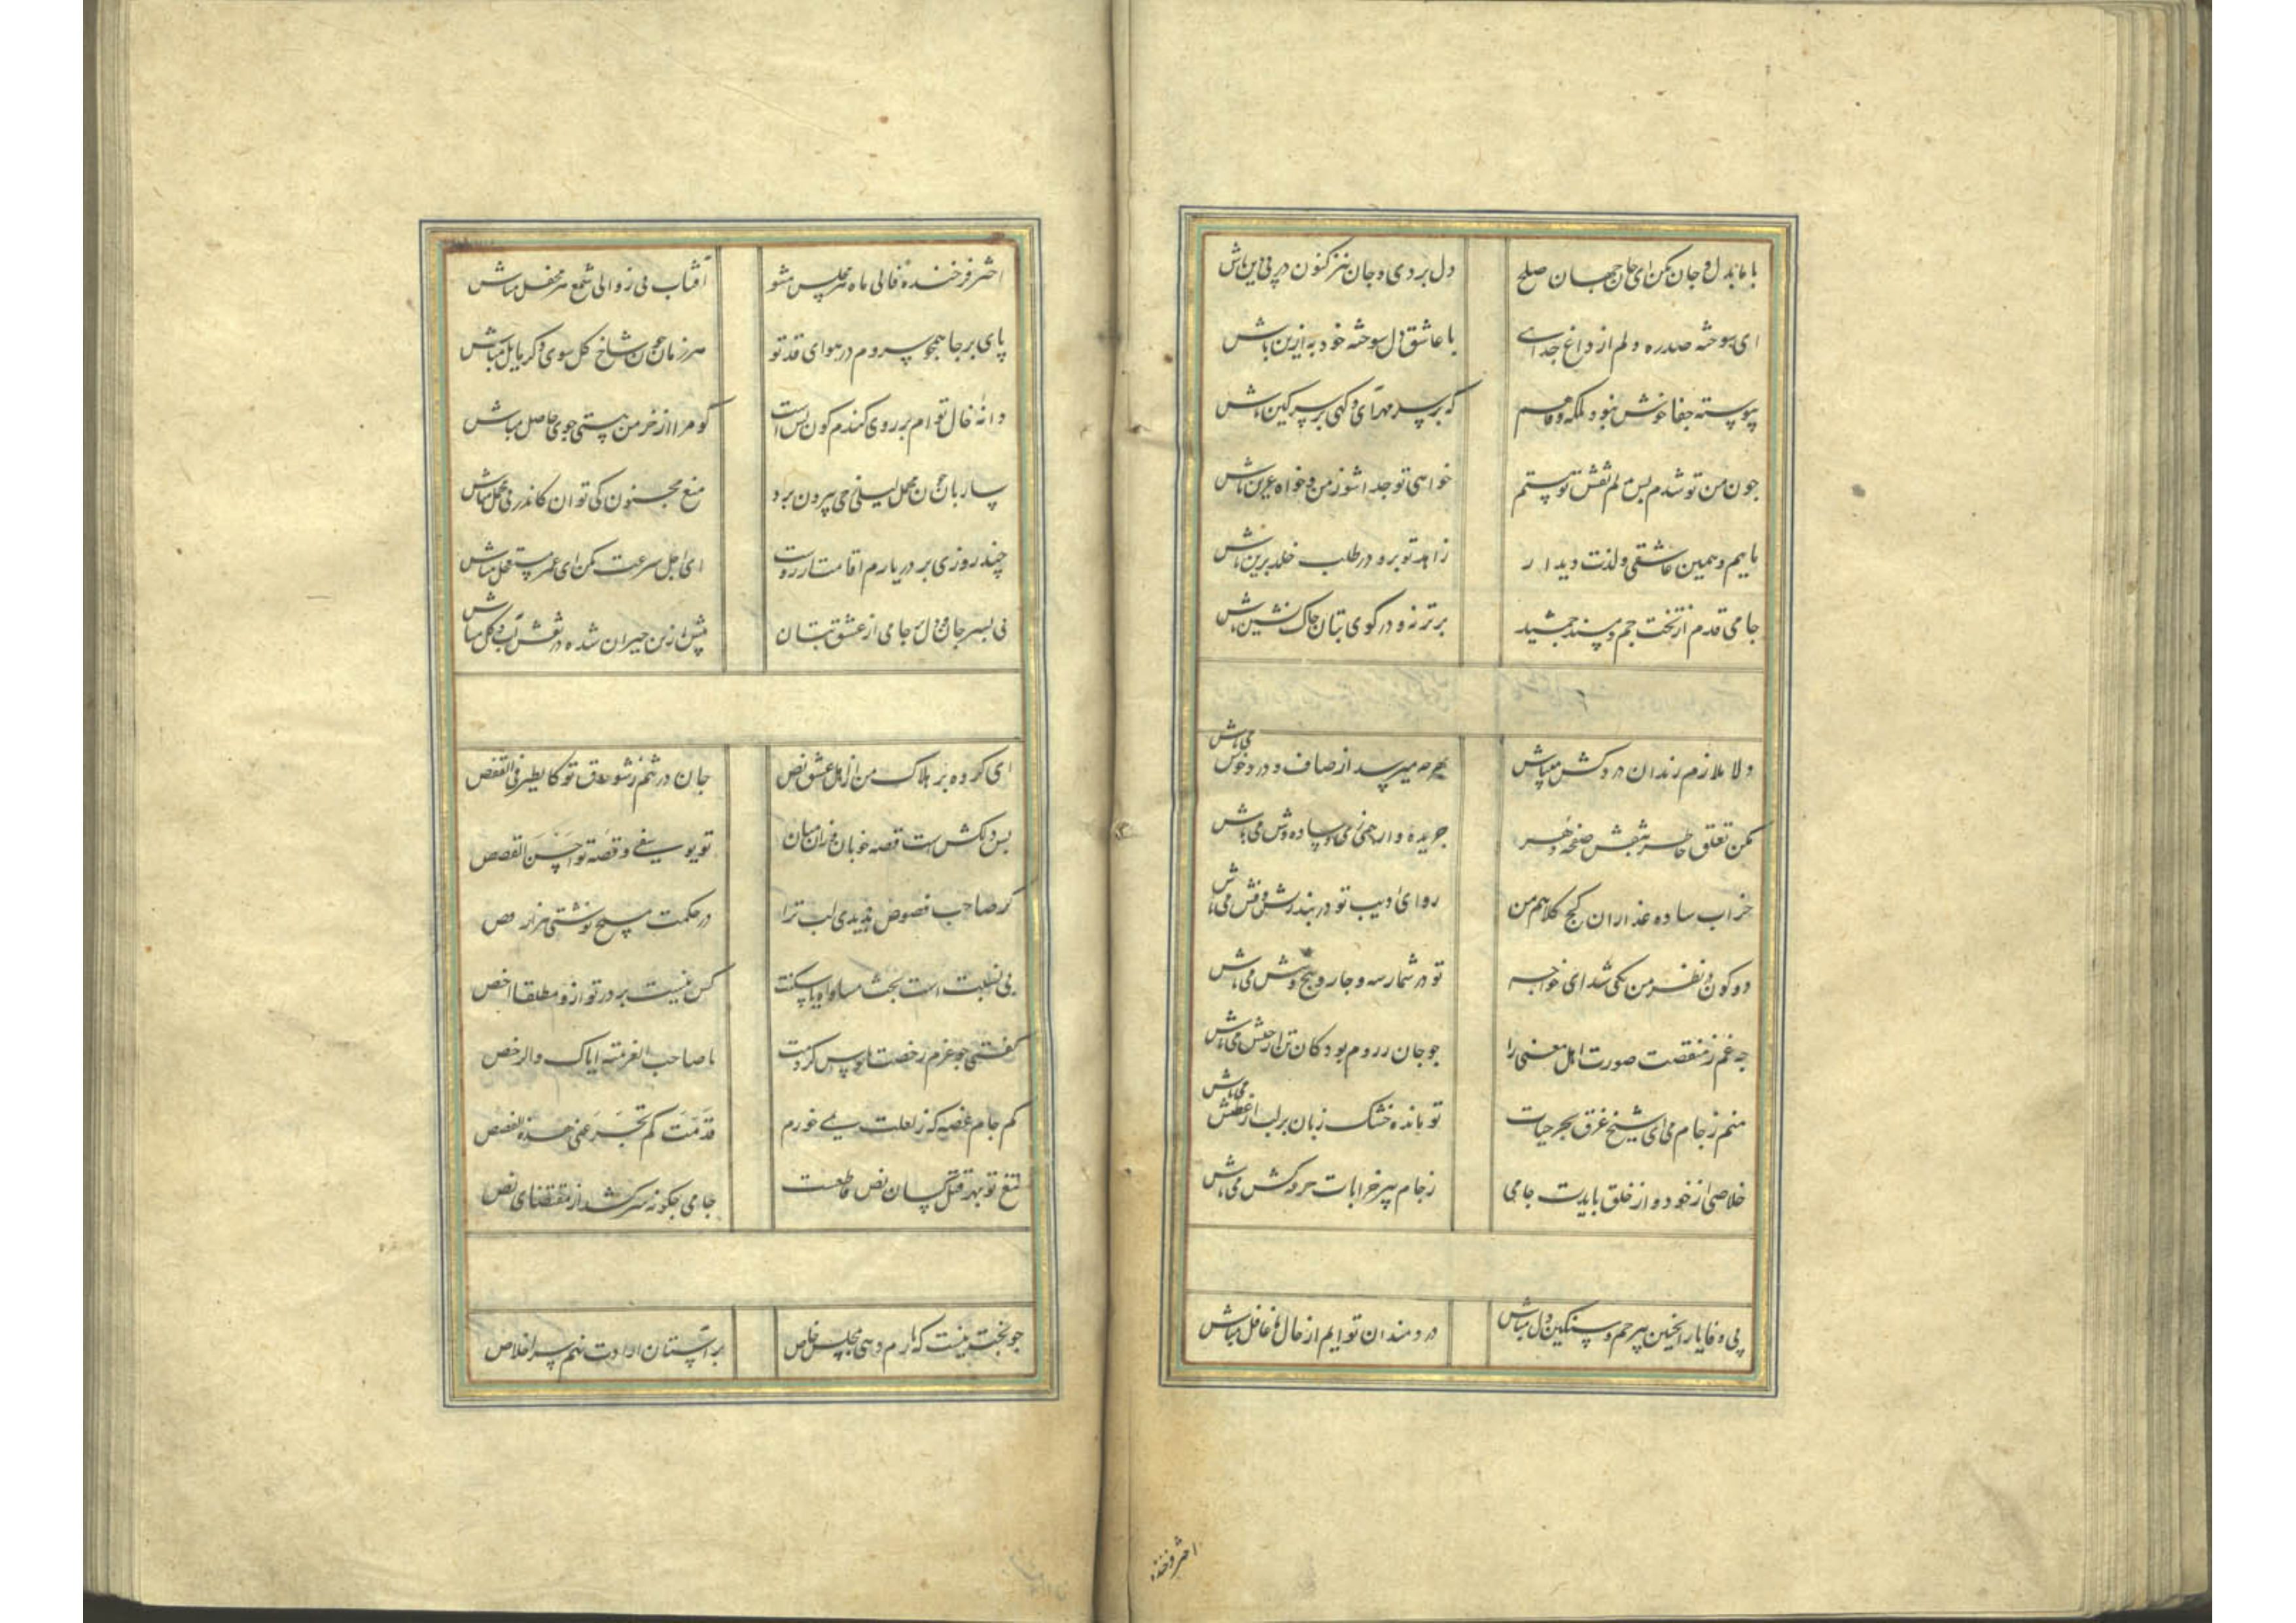 با ما بدل و جان مکن ای جان جهان صلح دل بردی و جان نیز کنون در پی دین باش
ای سوخته صدره دلم از داغ جدایی با عاشق دل سوخته خود به ازین باش
پیوسته جفا خوش نبود بلکه وفا هم که بر سر مهر آی و کهی بر سر کین باش
جون من تو شدم بس دلم نقش تو پستم خواهی تو جدا شو ز من و خواه قرین باش
ماییم و همین عاشقی و لذت دیدار زاهد تو برو در طلب خلد برین باش
جامی قدم از تخت جم و مسند جمشید برتر نه و در کوی بتان خاک نشین باش
دلا ملازم رندان دردکش میباش بهرجه میرسد از صاف و درد خوش می باش
مکن تعلق خاطر بنقش صفحه دهر جریده وار همی زی و ساده وش می باش
خراب ساده عذاران کج کلاهم من رو ای ادیب تو در بند ریش و فش می باش
دو کون در نظر من یکی شد ای خواجه تو در شمار سه و جار و پنج و شش می باش
جه غم ز منقصت صورت اهل معنی را جو جان ز روم بود کو تن از حبش می باش
منم ز جام می ای شیخ غرق بحر حیات تو مانده خشک زبان بر لب از عطش می باش
خلاصی از خود و از خلق بایدت جامی ز جام پیر خرابات جرعه کش می باش
بی وفا یارا جنین بیرحم و سنکین دل مباش دردمندان توایم از حال ما غافل مباش
اختر فرخنده
اختر فرخنده فالی ماه هر مجلس مشو آفتاب بی زوالی شمع هر محفل مباش
پای بر جا همجو سروم در هوای قد تو هر زمان جون شاخ کل سوی دکر مایل مباش
دانه خال توام بر روی کندم کون بس است کو مرا از خرمن هستی جوی حاصل مباش
ساربان جون محمل لیلی ز حی بیرون برد منع مجنون کی توان کاندر پی محمل مباش
چند روزی بر در یارم اقامت آرزوست ای اجل سرعت مکن ای عمر مستعجل مباش
نی بسر جامی از عشق بتان پیش ازین حیران شده در نقش آب و کل مباش
ای کرده بر هلاک من از اهل عشق نص جان در تنم ز شوق تو کالطیر فی القفص
بس دلکش است قصه خوبان وزان میان تو یوسفی و قصه تو احسن القصص
کر صاحب فصوص بدیدی لب ترا در حکمت مسیح نوشتی هزار فص
بی نسبت است بحث مساواه با سکت کس نیست بر در تو ازو مطلقا اخص
کفتی جو عزم رخصت پابوس کردمت یا صاحب العزیمه ایاک والرخص
کم جام غصه که ز لعلت نمی خورم قد مت کم تجرعنی هذه الغصص
تیغ تو بهر قتل کسان نص قاطعست جامی جکونه سرکشد از مقتضای نص
جو بخت نیست که بارم دهی بمجلس خاص بر آستان ارادت نهم سر اخلاص